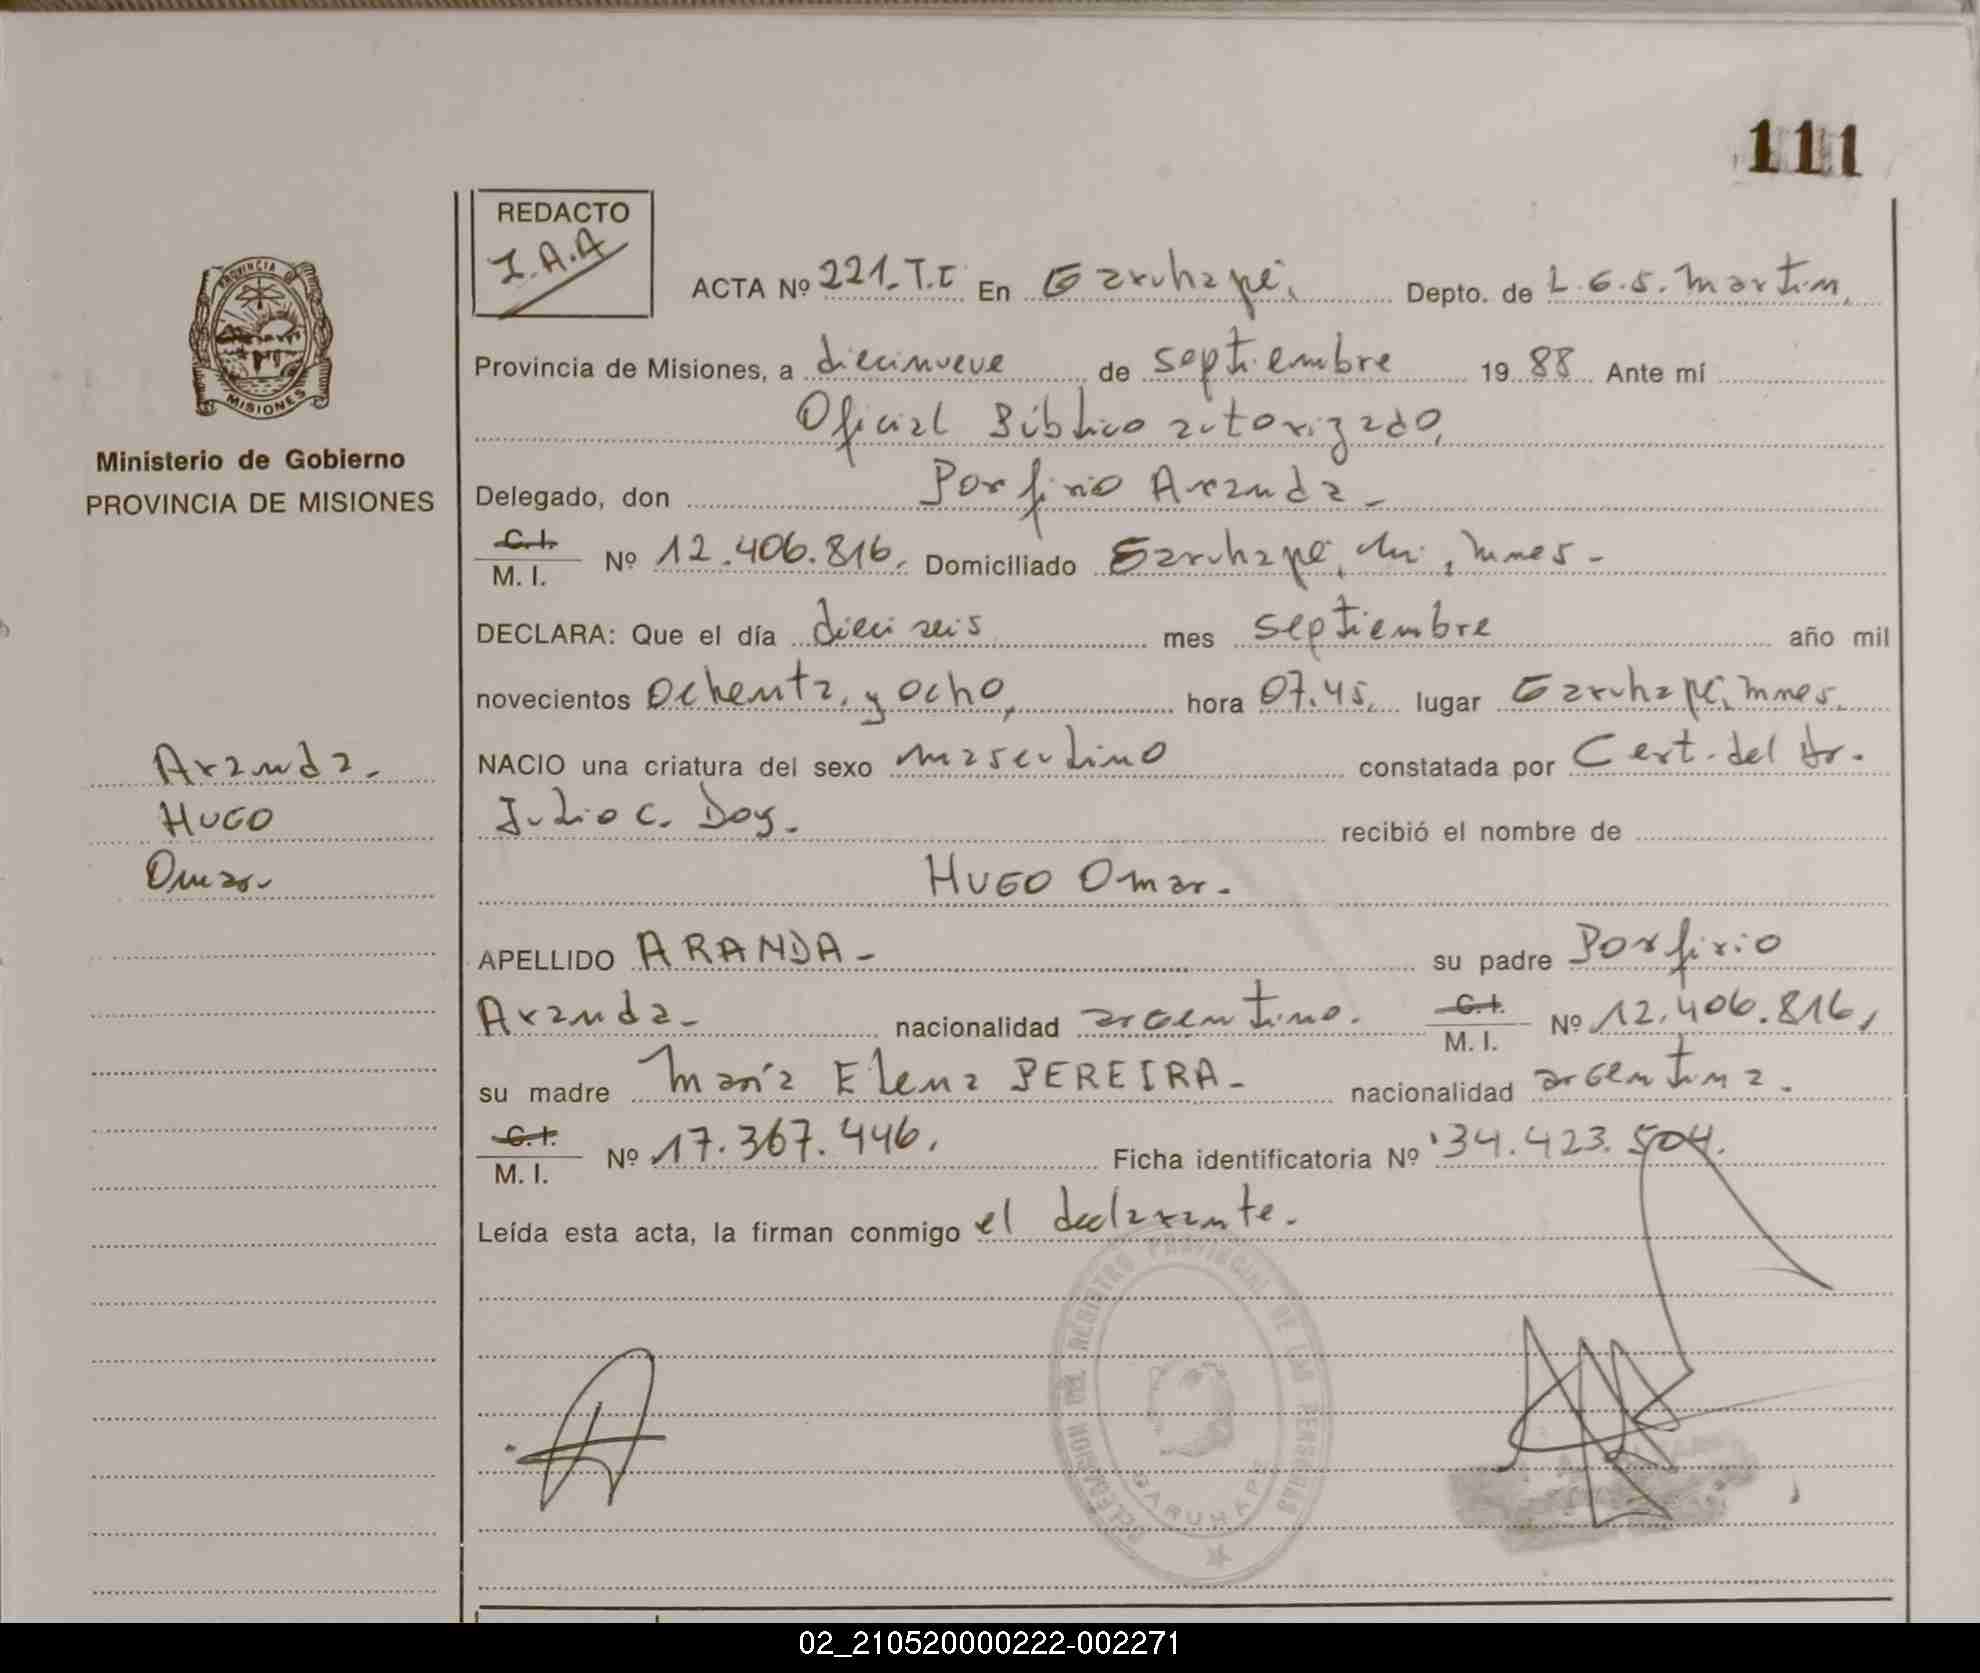 111
REDACTO
I.A.A
ACTA Nº 221.T.I En Garuhapé, Depto. de L.G.S. Martin,
PROVINCIA
MISIONES
Provincia de Misiones, a diecinueve de septiembre 1988 Ante mí
Oficial Público autorizado,
Ministerio de Gobierno
PROVINCIA DE MISIONES
Delegado, don Porfirio Aranda -
C. I.
M. I. Nº 12.406.816, Domiciliado Garuhapé, Mnes -
DECLARA: Que el día dieci seis mes septiembre año mil
novecientos ochenta y ocho, hora 07.45, lugar Garuhapé, Mnes,
Aranda.
Hugo
Omar.
NACIO una criatura del sexo masculino constatada por Cert. del Dr.
Julio C. Doy. recibió el nombre de
HUGO Omar.
APELLIDO ARANDA - su padre Porfirio
Aranda - nacionalidad argentino. C. I. M. I. Nº 12.406.816,
su madre María Elena PEREIRA - nacionalidad argentina.
C. I.
M. I. Nº 17.367.446. Ficha identificatoria Nº 34.423.504.
Leída esta acta, la firman conmigo el declarante.
DELEGACION DEL REGISTRO PROVINCIAL DE LAS PERSONAS
GARUHAPE
02_210520000222-002271